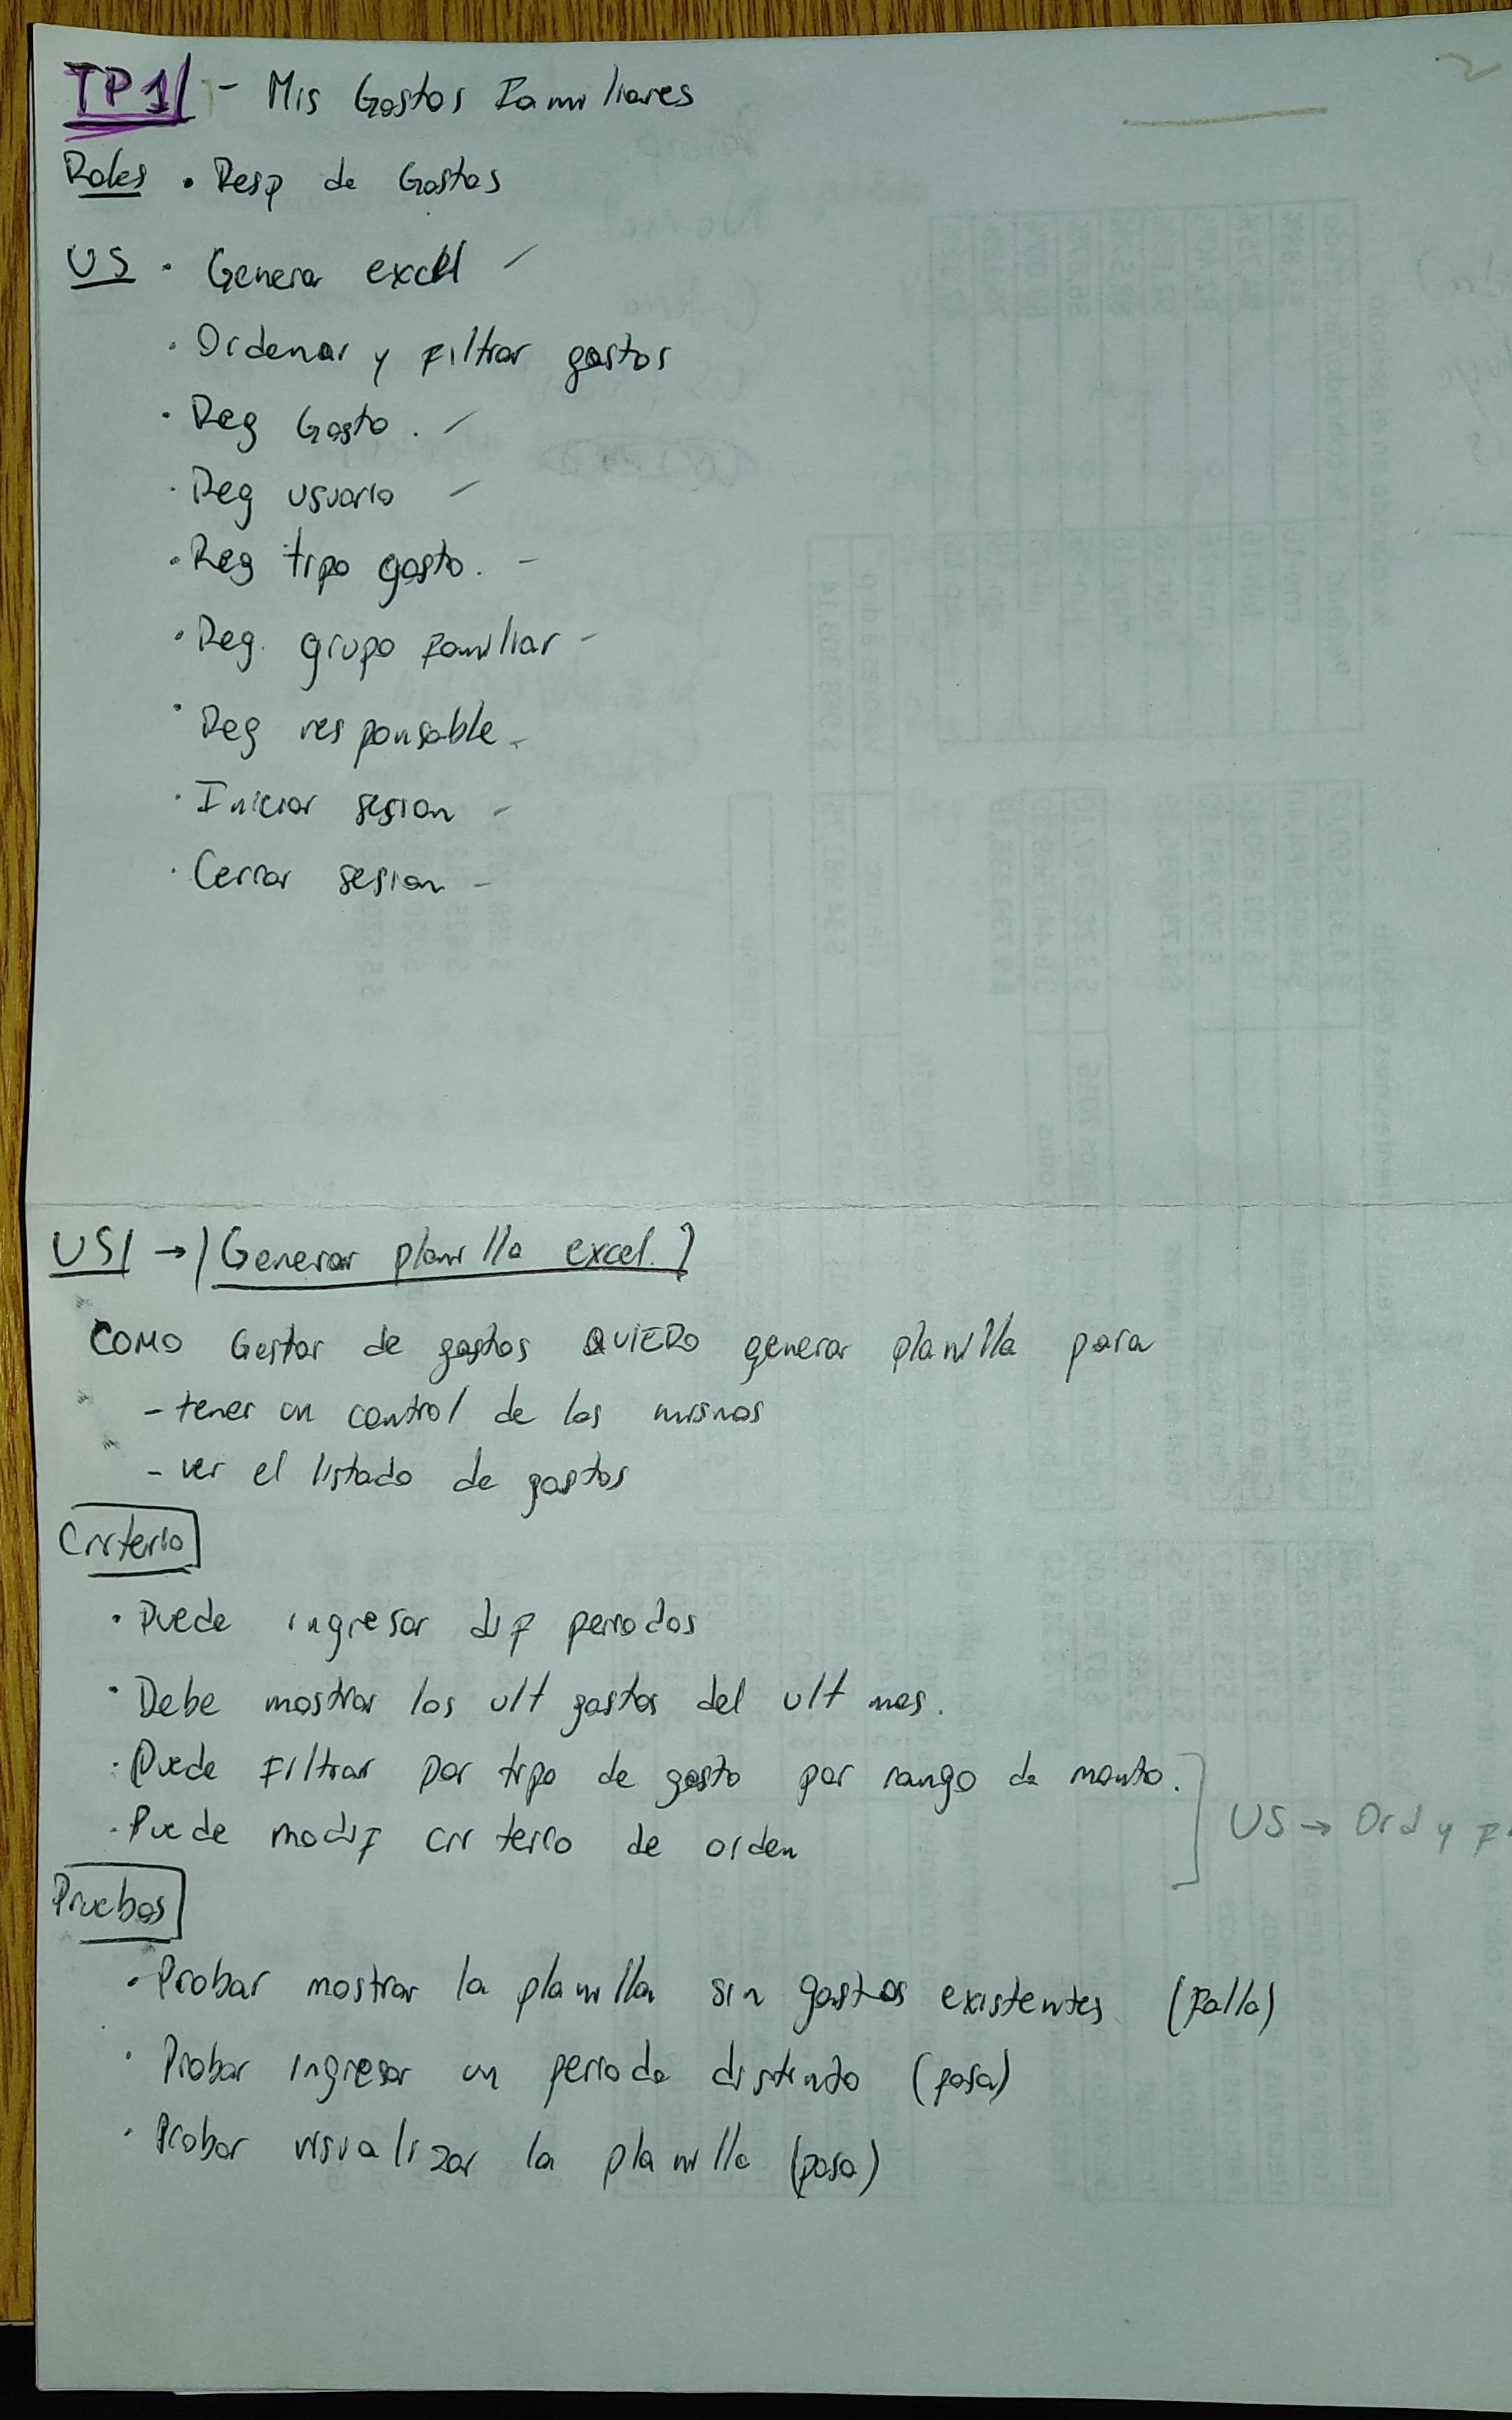 TP1 - Mis Gastos Familiares
Roles • Resp de Gastos
US • Generar excel
• Ordenar y Filtrar gastos
• Reg Gasto.
• Reg usuario
• Reg tipo gasto.
• Reg. grupo Familiar
• Reg responsable
• Iniciar sesion
• Cerrar sesion
US → Generar planilla excel.
COMO Gestor de gastos QUIERO generar planilla para
- tener un control de los mismos
- ver el listado de gastos
Criterio
• Puede ingresar dif periodos
• Debe mostrar los ult gastos del ult mes.
• Puede Filtrar por tipo de gasto por rango de monto.
• Puede modif criterio de orden
US → Ord y F
Pruebas
• Probar mostrar la planilla sin gastos existentes (Falla)
• Probar ingresar un periodo distinto (pasa)
• Probar visualizar la planilla (pasa)